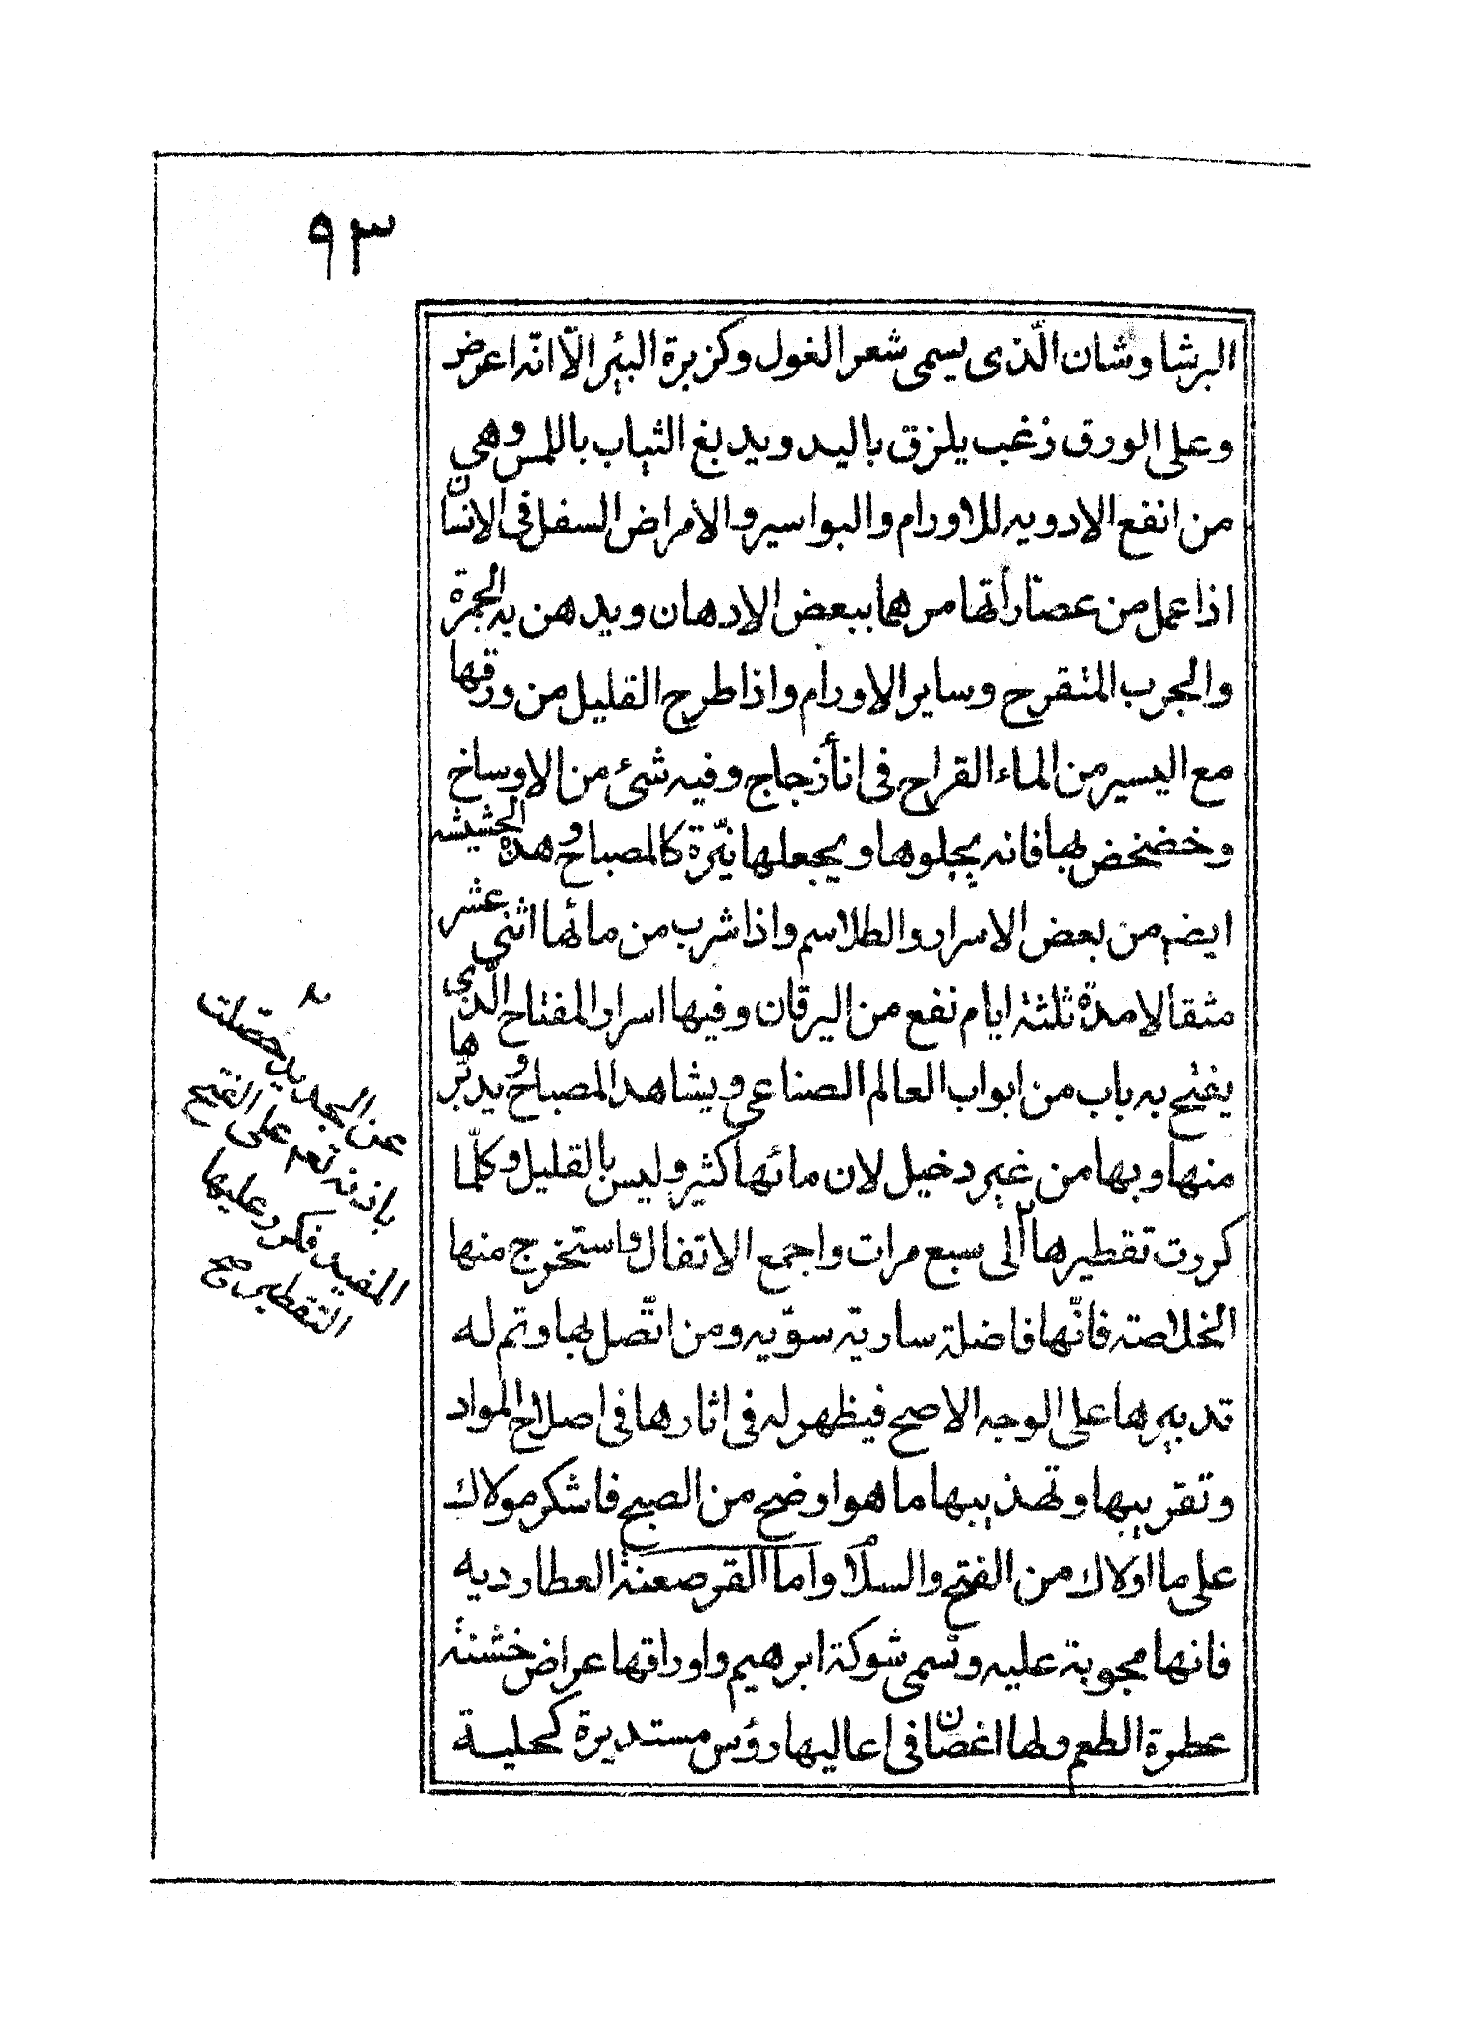 ٩٣
البرشاوشان الّذى يسمى شعر الغول وكزبرة البئر الاّ انّه اعرض
وعلى الورق زغب يلزق باليد ويدبغ الثياب باللمس وهي
من انفع الادويه للاورام والبواسير والامراض السفل فى الانسان
اذا عمل من عصاراتها مرهما ببعض الادهان ويدهن به الجمرة
والجرب المتقرح وساير الاورام واذا طرح القليل من ورقها
مع اليسير من الماء القراح فى انأ زجاج وفيه شئ من الاوساخ
وخضخض بها فانه يجلوها ويجعلها نيّرة كالمصباح وهذه الحشيشه
ايضم من بعض الاسرار والطلاسم واذا شرب من مائها اثنى عشر
مثقالا مدة ثلثة ايام نفع من اليرقان وفيها اسرار المفتاح الّذى
يفتح به باب من ابواب العالم الصناعي ويشاهد المصباح ويدبّرها
منها وبها من غير دخيل لان مائها كثير وليس بالقليل وكلّما
كررت تقطيرها ٢ الى سبع مرات واجمع الاتفال واستخرج منها
الخلاصته فانّها فاضلة سارية سوّيه ومن اتّصل بها وتم له
تدبيرها على الوجه الاصح فيظهر له فى اثارها فى اصلاح المواد
وتقريبها وتهذيبها ما هو اوضح من الصبح فاشكر مولاك
على ما اولاك من الفتح والسلام واما القرصعنة العطارديه
فانها مجوبة عليه وتسمى شوكة ابرهيم واوراقها عراض خشنة
عطرة الطعم ولها اغصان فى اعاليها رؤس مستديرة كحلية
عن الجد يد حصلت
باذنه تعه على الفتح
المفيد فكرر عليها
التقطير صح